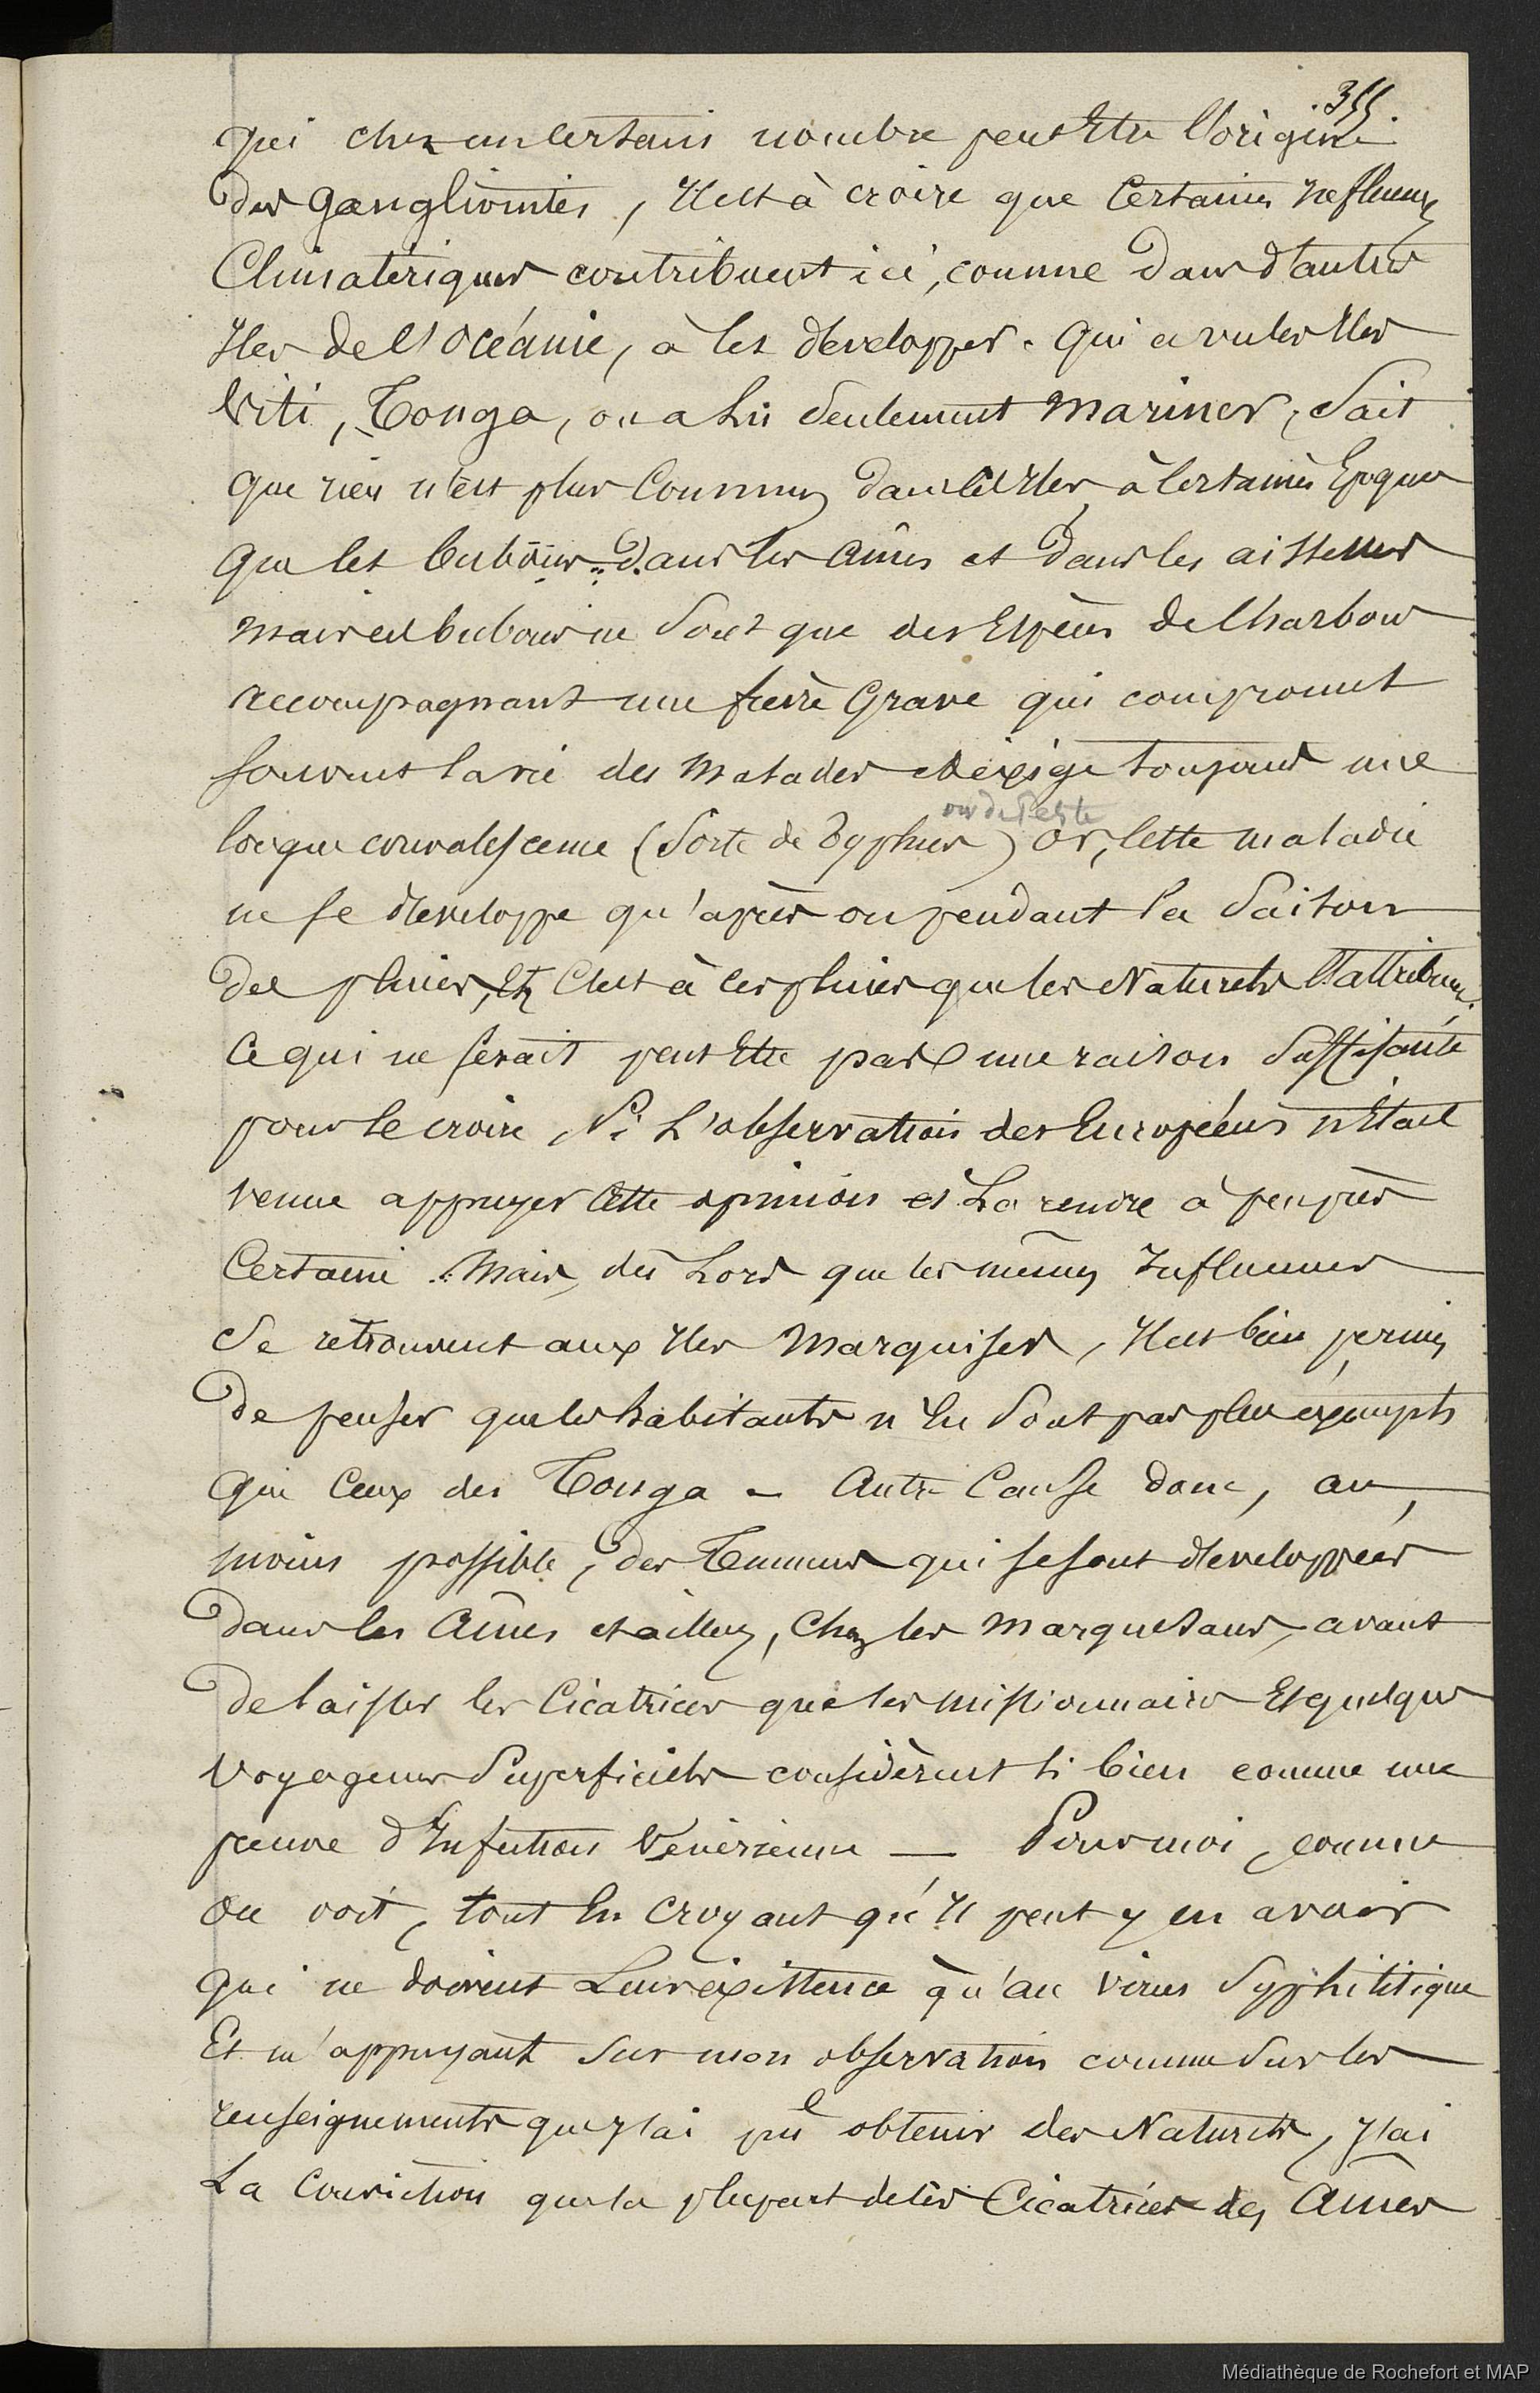 355.
qui chez un certain nombre peut être l'origine
des ganglionites, Il est à croire que Certaines Influences
Climatériques contribuent ici, comme dans d'autres
Iles de l'Océanie, à les développer. Qui a vu les Iles
Viti, Tonga, ou a lu seulement Mariner, Sait
que rien n'est plus Commun, dans ces Iles, à Certaines Epoques
que les bubons dans les aînes et dans les aisselles
mais ces bubons ne sont que des Espèces de Charbons
accompagnant une fièvre Grave qui compromet
souvent la vie des Malades et exige toujours une
longue convalescence (Sorte de Typhus) Or, Cette maladie
ou de Peste
ne se développe qu'après ou pendant la Saison
des pluies, Et C'est à ces pluies que les Naturels l'attribuent.
Ce qui ne serait peut Etre pas une raison Suffisante
pour le croire Si L'observation des Européens n'Etait
venue appuyer Cette opinion et La rendre à peu près
Certaine. Mais, dès Lors que les mêmes Influences
Se retrouvent aux Iles Marquises, Il est bien permis
De penser que les habitants n'En Sont pas plus exempts
que Ceux des Tonga — Autre Cause donc, au
moins possible, des Tumeurs qui se sont développées
Dans les Aînes et ailleurs, Chez les Marquesans, avant
De laisser les Cicatrices que les missionnaires Et quelques
Voyageurs Superficiels considèrent si bien comme une
preuve d'Infection Vénérienne — Pour moi, comme
on voit, tout En Croyant qu'Il peut y en avoir
qui ne doivent Leur existence qu'au virus Syphilitique
Et m'appuyant Sur mon observation comme Sur les
renseignements que J'ai pû obtenir des Naturels, J'ai
La Conviction que la plupart de ces Cicatrices des Aînes
Médiathèque de Rochefort et MAP